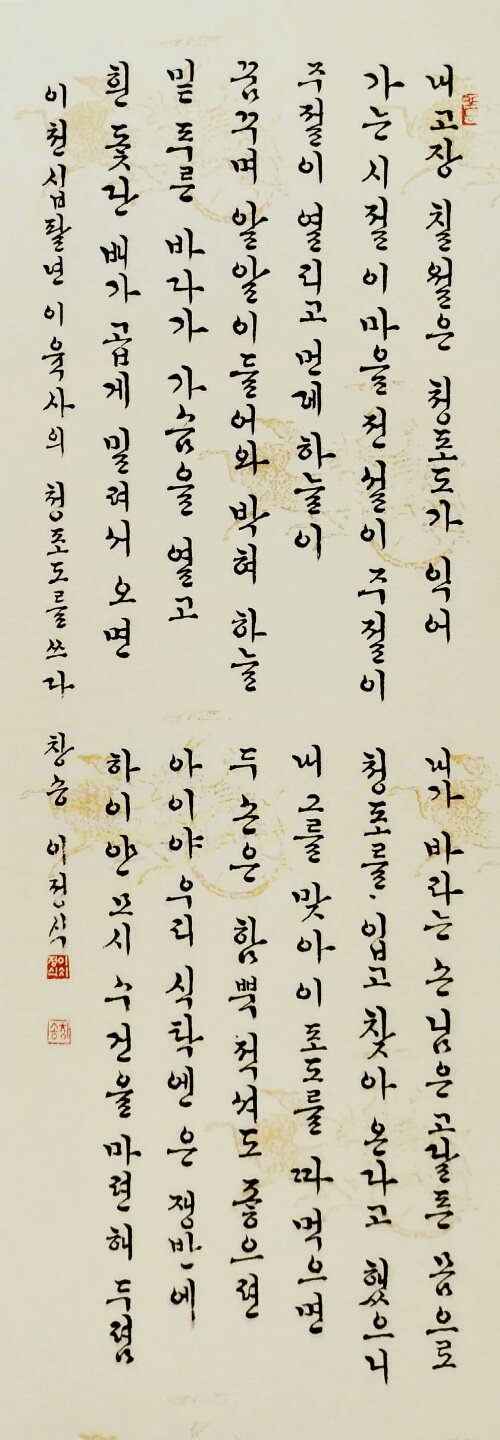 내 고장 칠월은 청포도가 익어
가는 시절 이 마을 전설이 주절이
주절이 열리고 먼데 하늘이
꿈꾸며 알알이 들어와 박혀 하늘
밑 푸른 바다가 가슴을 열고
흰 돛단 배가 곱게 밀려서 오면
내가 바라는 손님은 고달픈 몸으로
청포를 입고 찾아 온다고 했으니
내 그를 맞아 이 포도를 따 먹으면
두 손은 함뿍 적셔도 좋으련
아이야 우리 식탁엔 은 쟁반에
하이얀 모시 수건을 마련해 두렴
이천십팔년 이육사의 청포도를 쓰다 창송 이정식